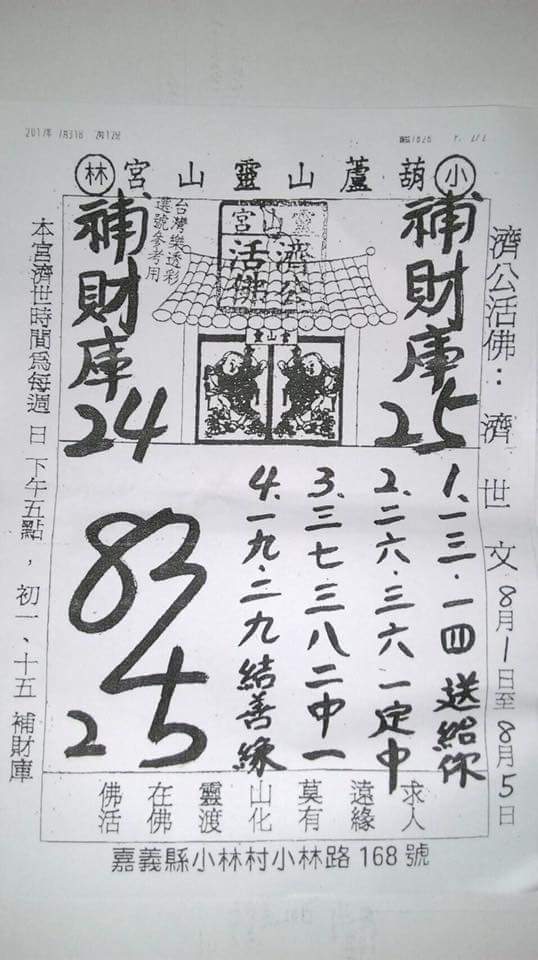 小葫蘆山靈山宮林
濟公活佛：濟世文8月1日至8月5日
補財庫25
靈山宮
濟公
活佛
靈山宮
台灣樂透彩
選號參考用
補財庫24
1、一三．一四送給你
2、二六．三六一定中
3、三七三八二中一
4、一九．二九結善緣
83
2
5
佛在靈山莫遠求
活佛渡化有緣人
本宮濟世時間為每週日下午五點，初一、十五補財庫
嘉義縣小林村小林路168號